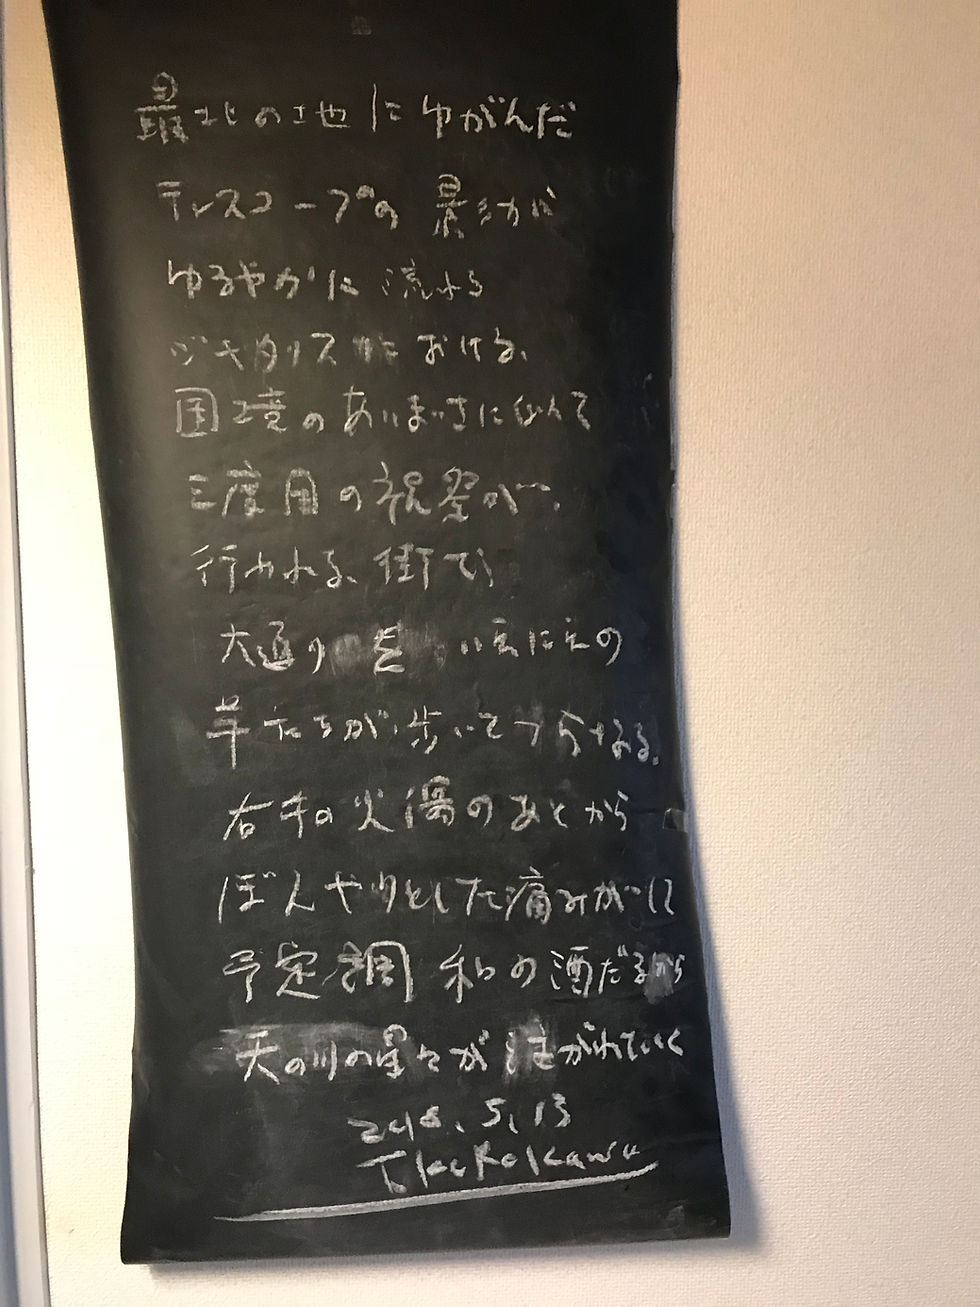 最北の地にゆがんだ
テレスコープの景色が
ゆるやかに流れる
ジギタリスにおける、
国境のあいまいさに似て
三度目の視察が、
行われる、街で、
大通り を いまにもの
羊たちが歩いてつらなる。
右手の火傷のあとから
ぼんやりとした痛みがに
予定調和の酒だるから
天の川の星々が注がれていく
5.13